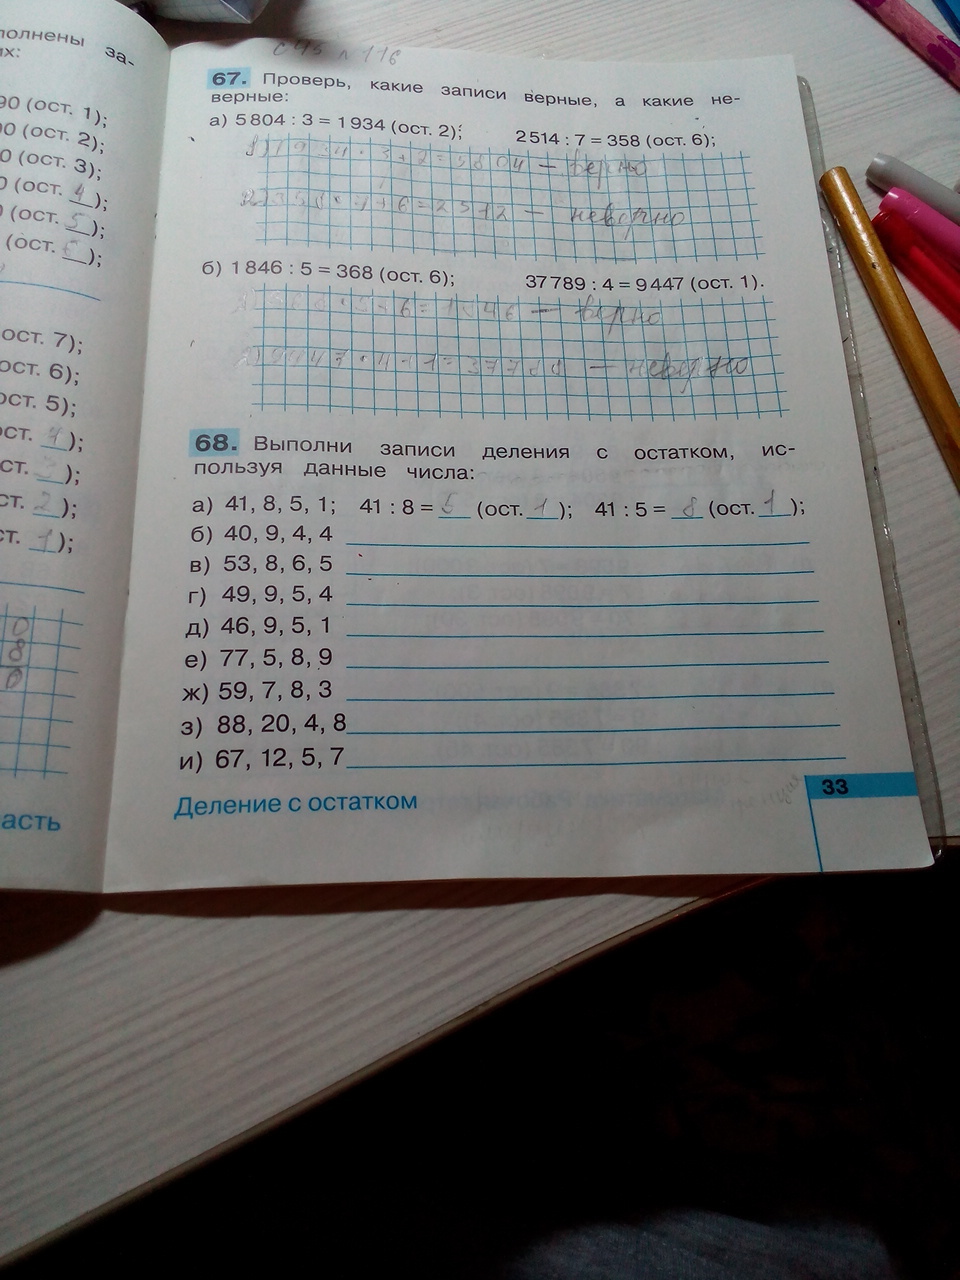 полнены за-
их:
90 (ост. 1);
00 (ост. 2);
0 (ост. 3);
0 (ост. 4);
0 (ост. 5);
(ост. 6);
ост. 7);
ост. 6);
ост. 5);
ост. 4);
ст. 3);
ст. 2);
т. 1);
0
8
0
асть
67. Проверь, какие записи верные, а какие не-
верные:
а) 5 804 : 3 = 1 934 (ост. 2); 2 514 : 7 = 358 (ост. 6);
1) 1934 · 3 + 2 = 5804 — верно
2) 358 · 7 + 6 = 2512 — неверно
б) 1 846 : 5 = 368 (ост. 6); 37 789 : 4 = 9 447 (ост. 1).
= 1846 — верно
2) 9447 · 4 + 1 = — неверно
68. Выполни записи деления с остатком, ис-
пользуя данные числа:
а) 41, 8, 5, 1; 41 : 8 = 5 (ост. 1); 41 : 5 = 8 (ост. 1);
б) 40, 9, 4, 4
в) 53, 8, 6, 5
г) 49, 9, 5, 4
д) 46, 9, 5, 1
е) 77, 5, 8, 9
ж) 59, 7, 8, 3
з) 88, 20, 4, 8
и) 67, 12, 5, 7
Деление с остатком
33